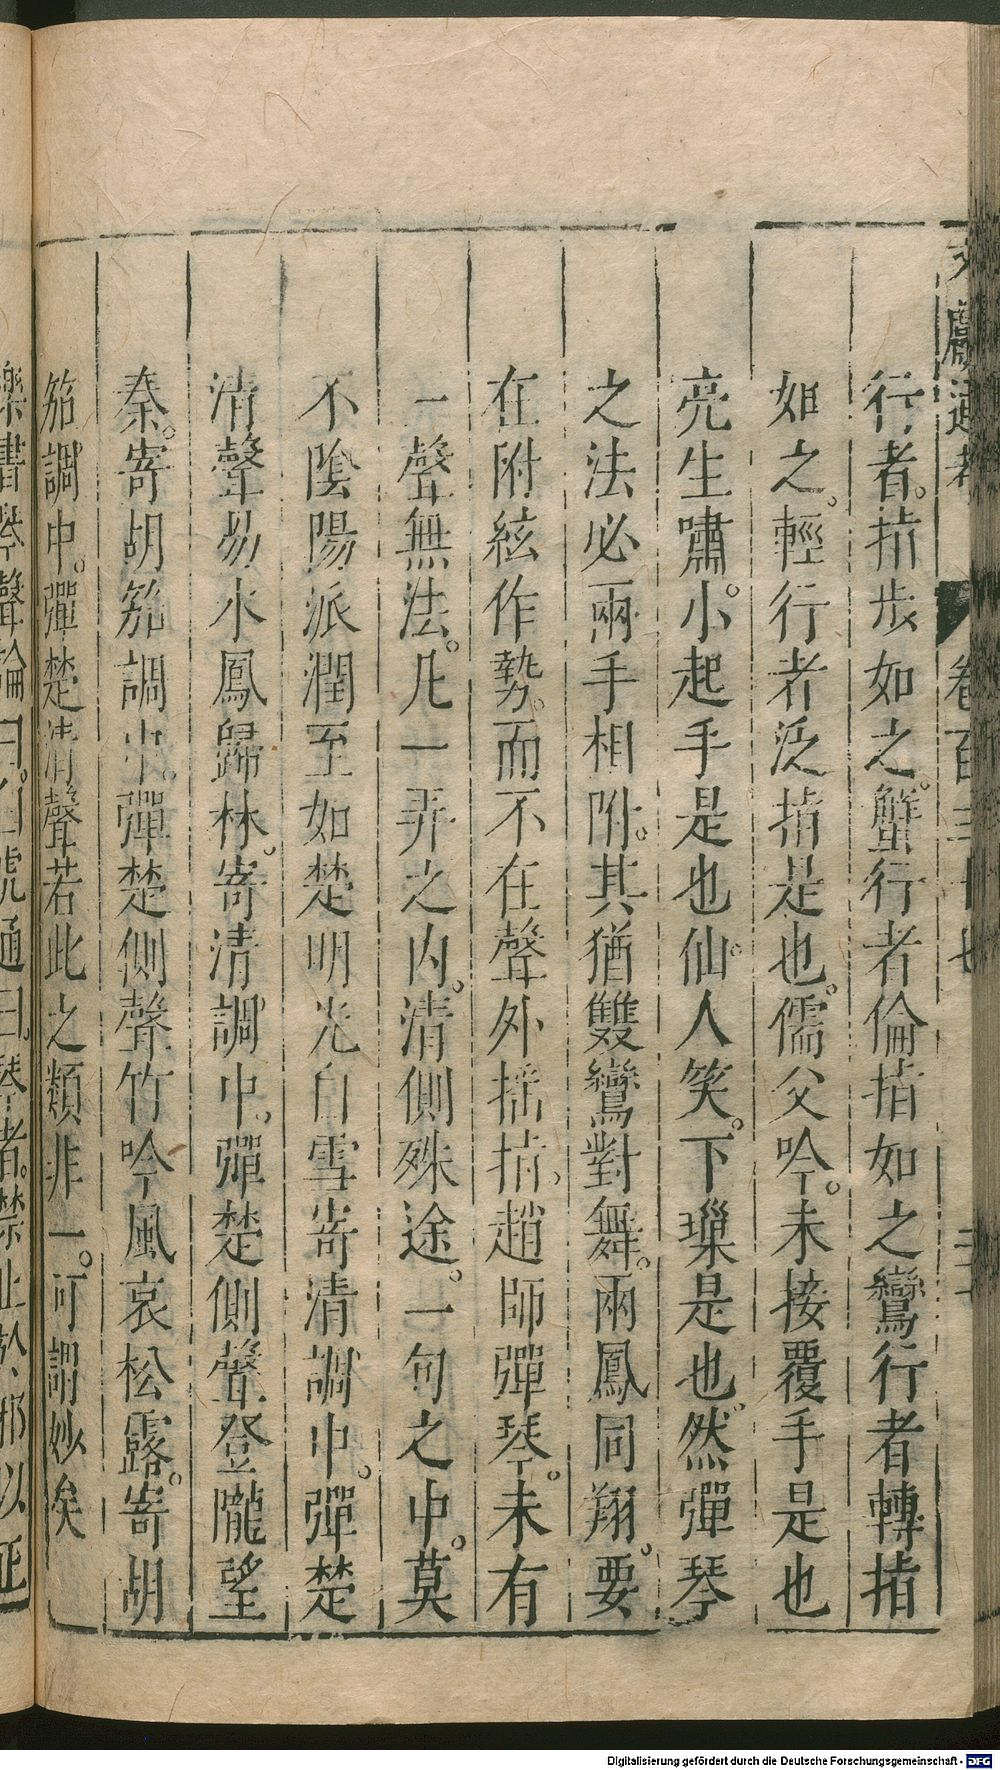 文獻通考 卷百三十七
行者。指步如之。蟹行者倫指如之鸞行者轉指
如之。輕行者泛指是也。儒父吟。未接覆手是也
亮生嘯。小起手是也。仙人笑。下璅是也。然彈琴
之法必兩手相附。其猶雙鸞對舞。兩鳳同翔。要
在附絃作勢。而不在聲外搖指。趙師彈琴。未有
一聲無法。凡一弄之內。清側殊途。一句之中。莫
不陰陽派潤至如楚明光白雪寄清調中。彈楚
清聲易水鳳歸林。寄清調中。彈楚側聲登隴望
秦。寄胡笳調中。彈楚側聲竹吟風哀松露。寄胡
笳調中。彈楚清聲若此之類非一。可謂妙矣
樂書琴聲論曰。白虎通曰。琴者。禁止於邪以正
Digitalisierung gefördert durch die Deutsche Forschungsgemeinschaft - DFG